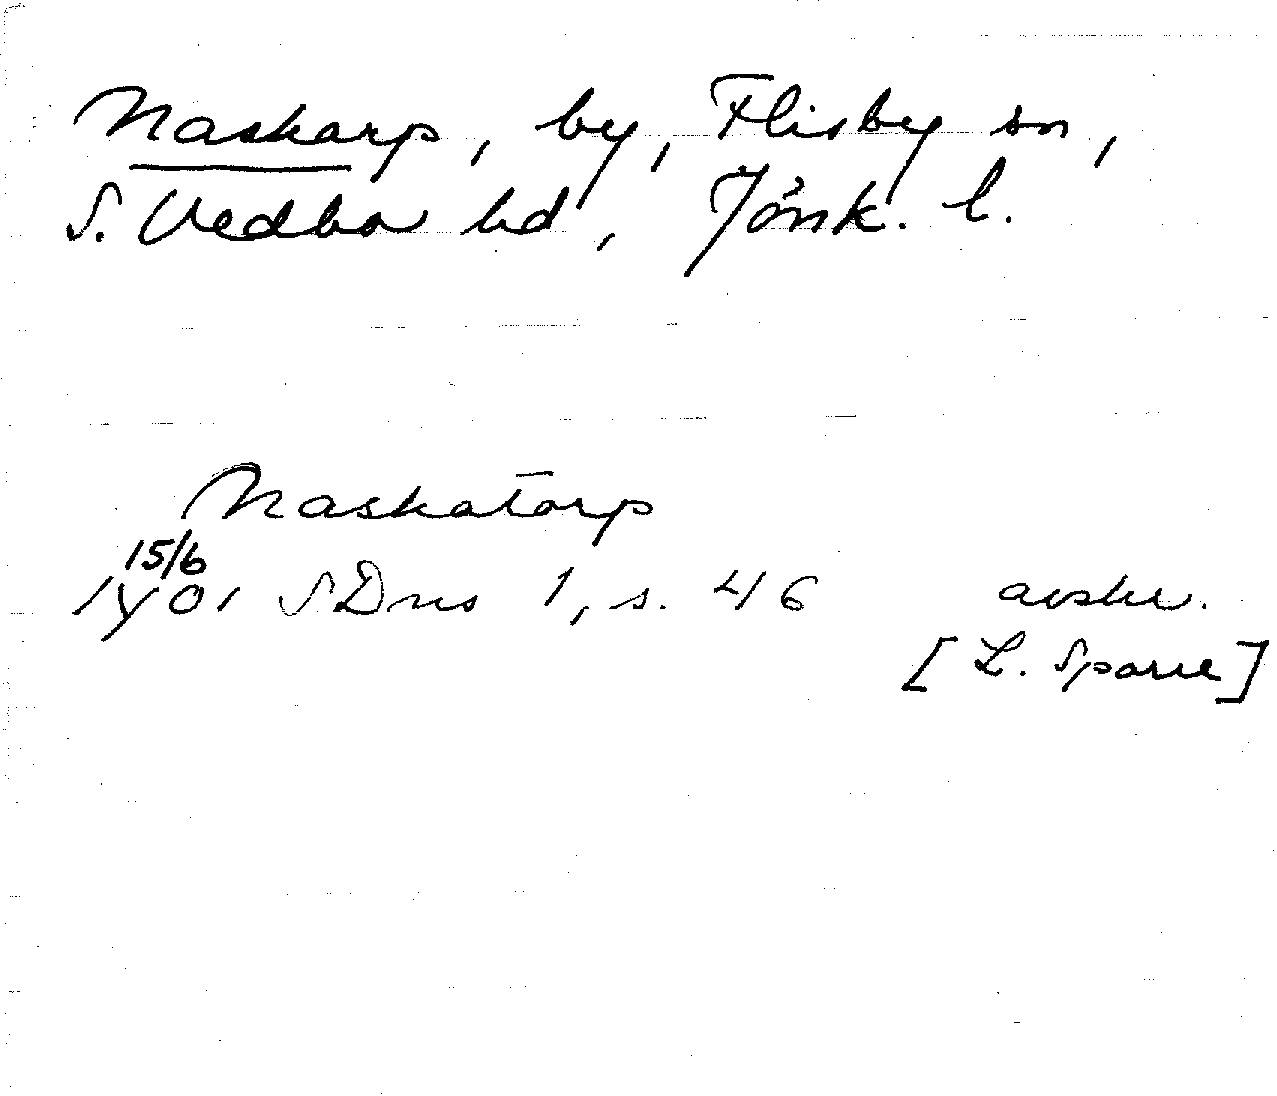 Naskarp, by, Flisby sn,
S. Vedbo hd, Jönk. l.
Naskatorp
15/6
1401 SDns 1, s. 46 avskr.
[L. Sparre]